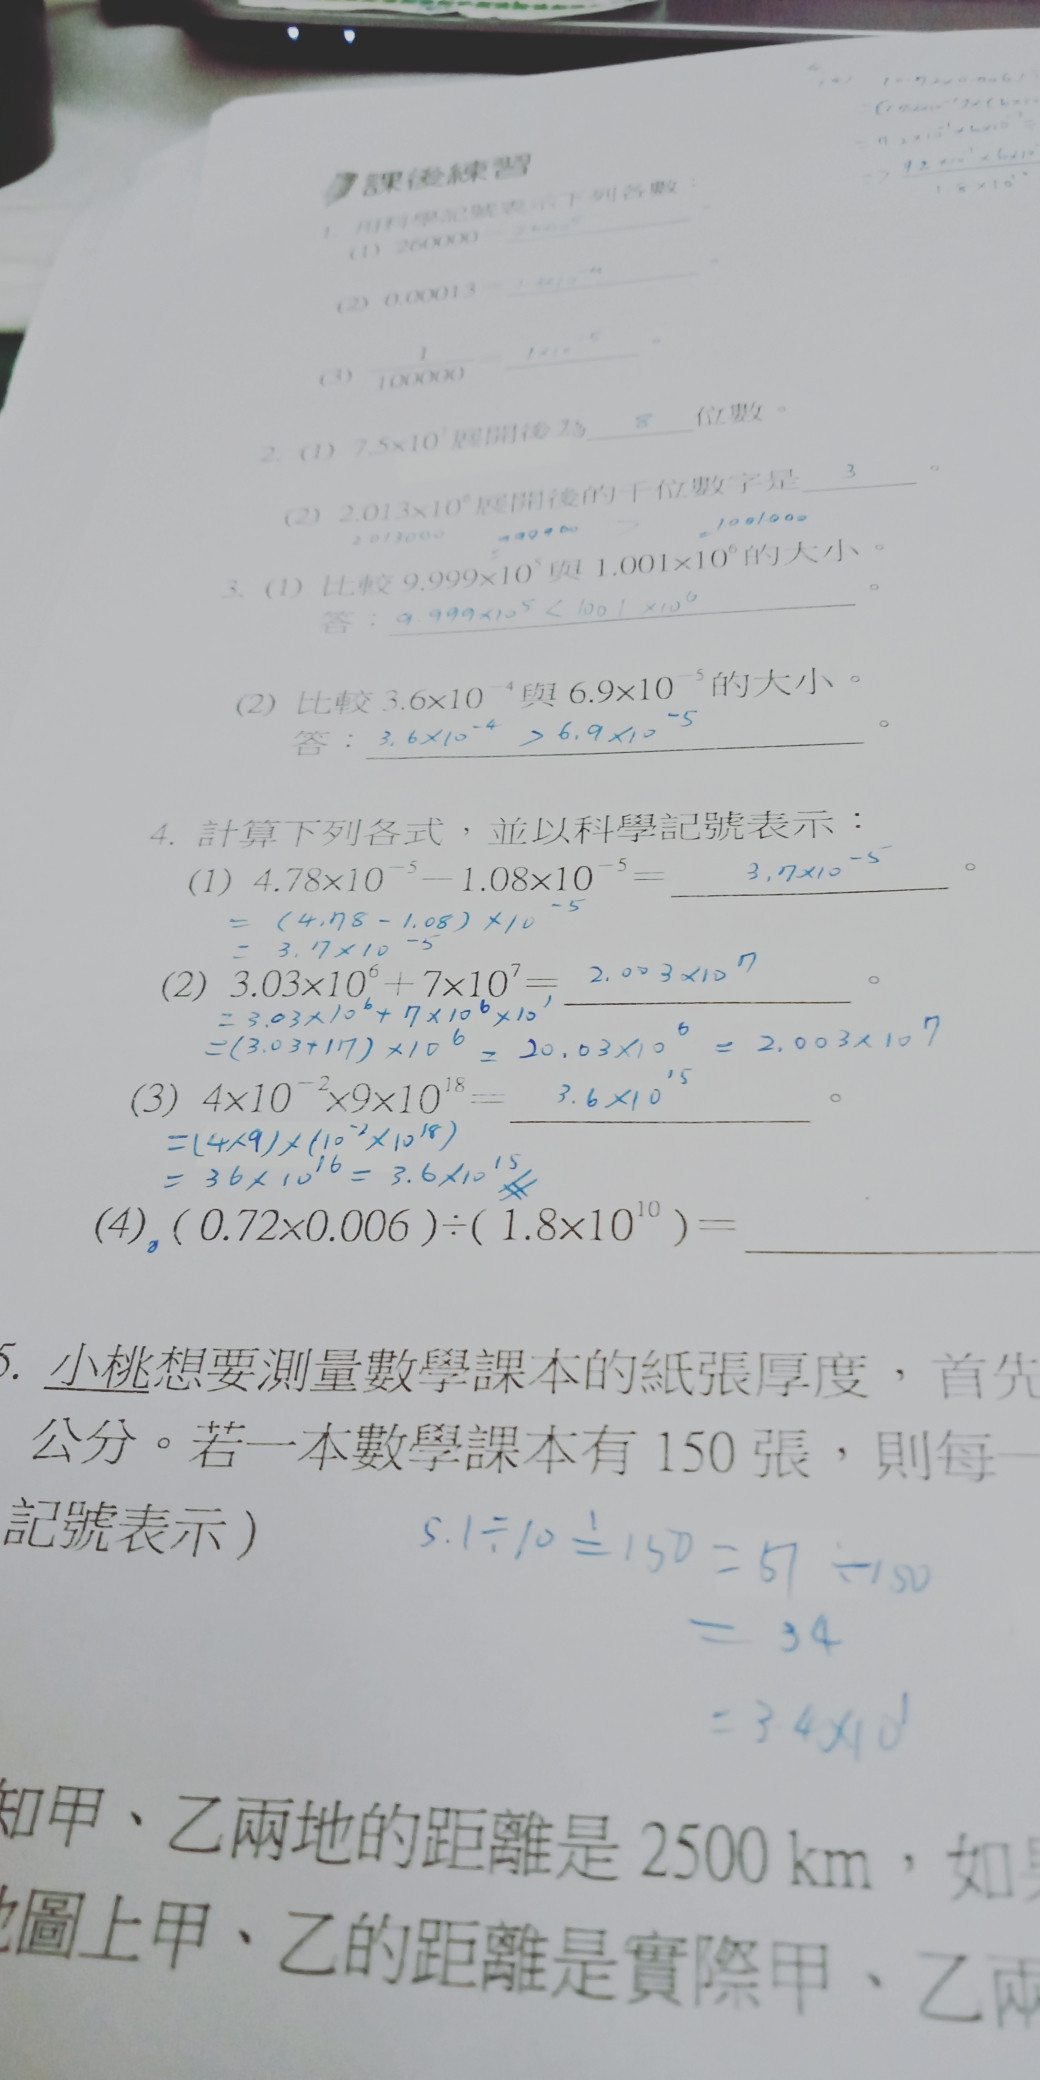 課後練習
1. 用科學記號表示下列各數：
(1) 260000
(2) 0.00013
(3) 1/100000 = 1×10⁻⁵ 。
2. (1) 7.5×10⁷展開後為 8 位數。
(2) 2.013×10⁶展開後的千位數字是 3 。
2013000 999900 > =1001000
3. (1) 比較 9.999×10⁵與 1.001×10⁶的大小。
答： 9.999×10⁵ < 1001×10⁶ 。
(2) 比較 3.6×10⁻⁴與 6.9×10⁻⁵的大小。
答： 3.6×10⁻⁴ > 6.9×10⁻⁵ 。
4. 計算下列各式，並以科學記號表示：
(1) 4.78×10⁻⁵－1.08×10⁻⁵＝ 3.7×10⁻⁵ 。
= (4.78－1.08)×10⁻⁵
= 3.7×10⁻⁵
(2) 3.03×10⁶＋7×10⁷＝ 2.003×10⁷ 。
=3.03×10⁶+7×10⁶×10¹
=(3.03+17)×10⁶ = 20.03×10⁶ = 2.003×10⁷
(3) 4×10⁻²×9×10¹⁸＝ 3.6×10¹⁵ 。
=(4×9)×(10⁻²×10¹⁸)
= 36×10¹⁶ = 3.6×10¹⁵
(4) ( 0.72×0.006 )÷( 1.8×10¹⁰ )＝
5. 小桃想要測量數學課本的紙張厚度，首先
公分。若一本數學課本有 150 張，則每一
記號表示）
5.1÷10 ÷150 = 51 ÷150
= 34
= 3.4×10¹
知甲、乙兩地的距離是 2500 km，如果
地圖上甲、乙的距離是實際甲、乙兩